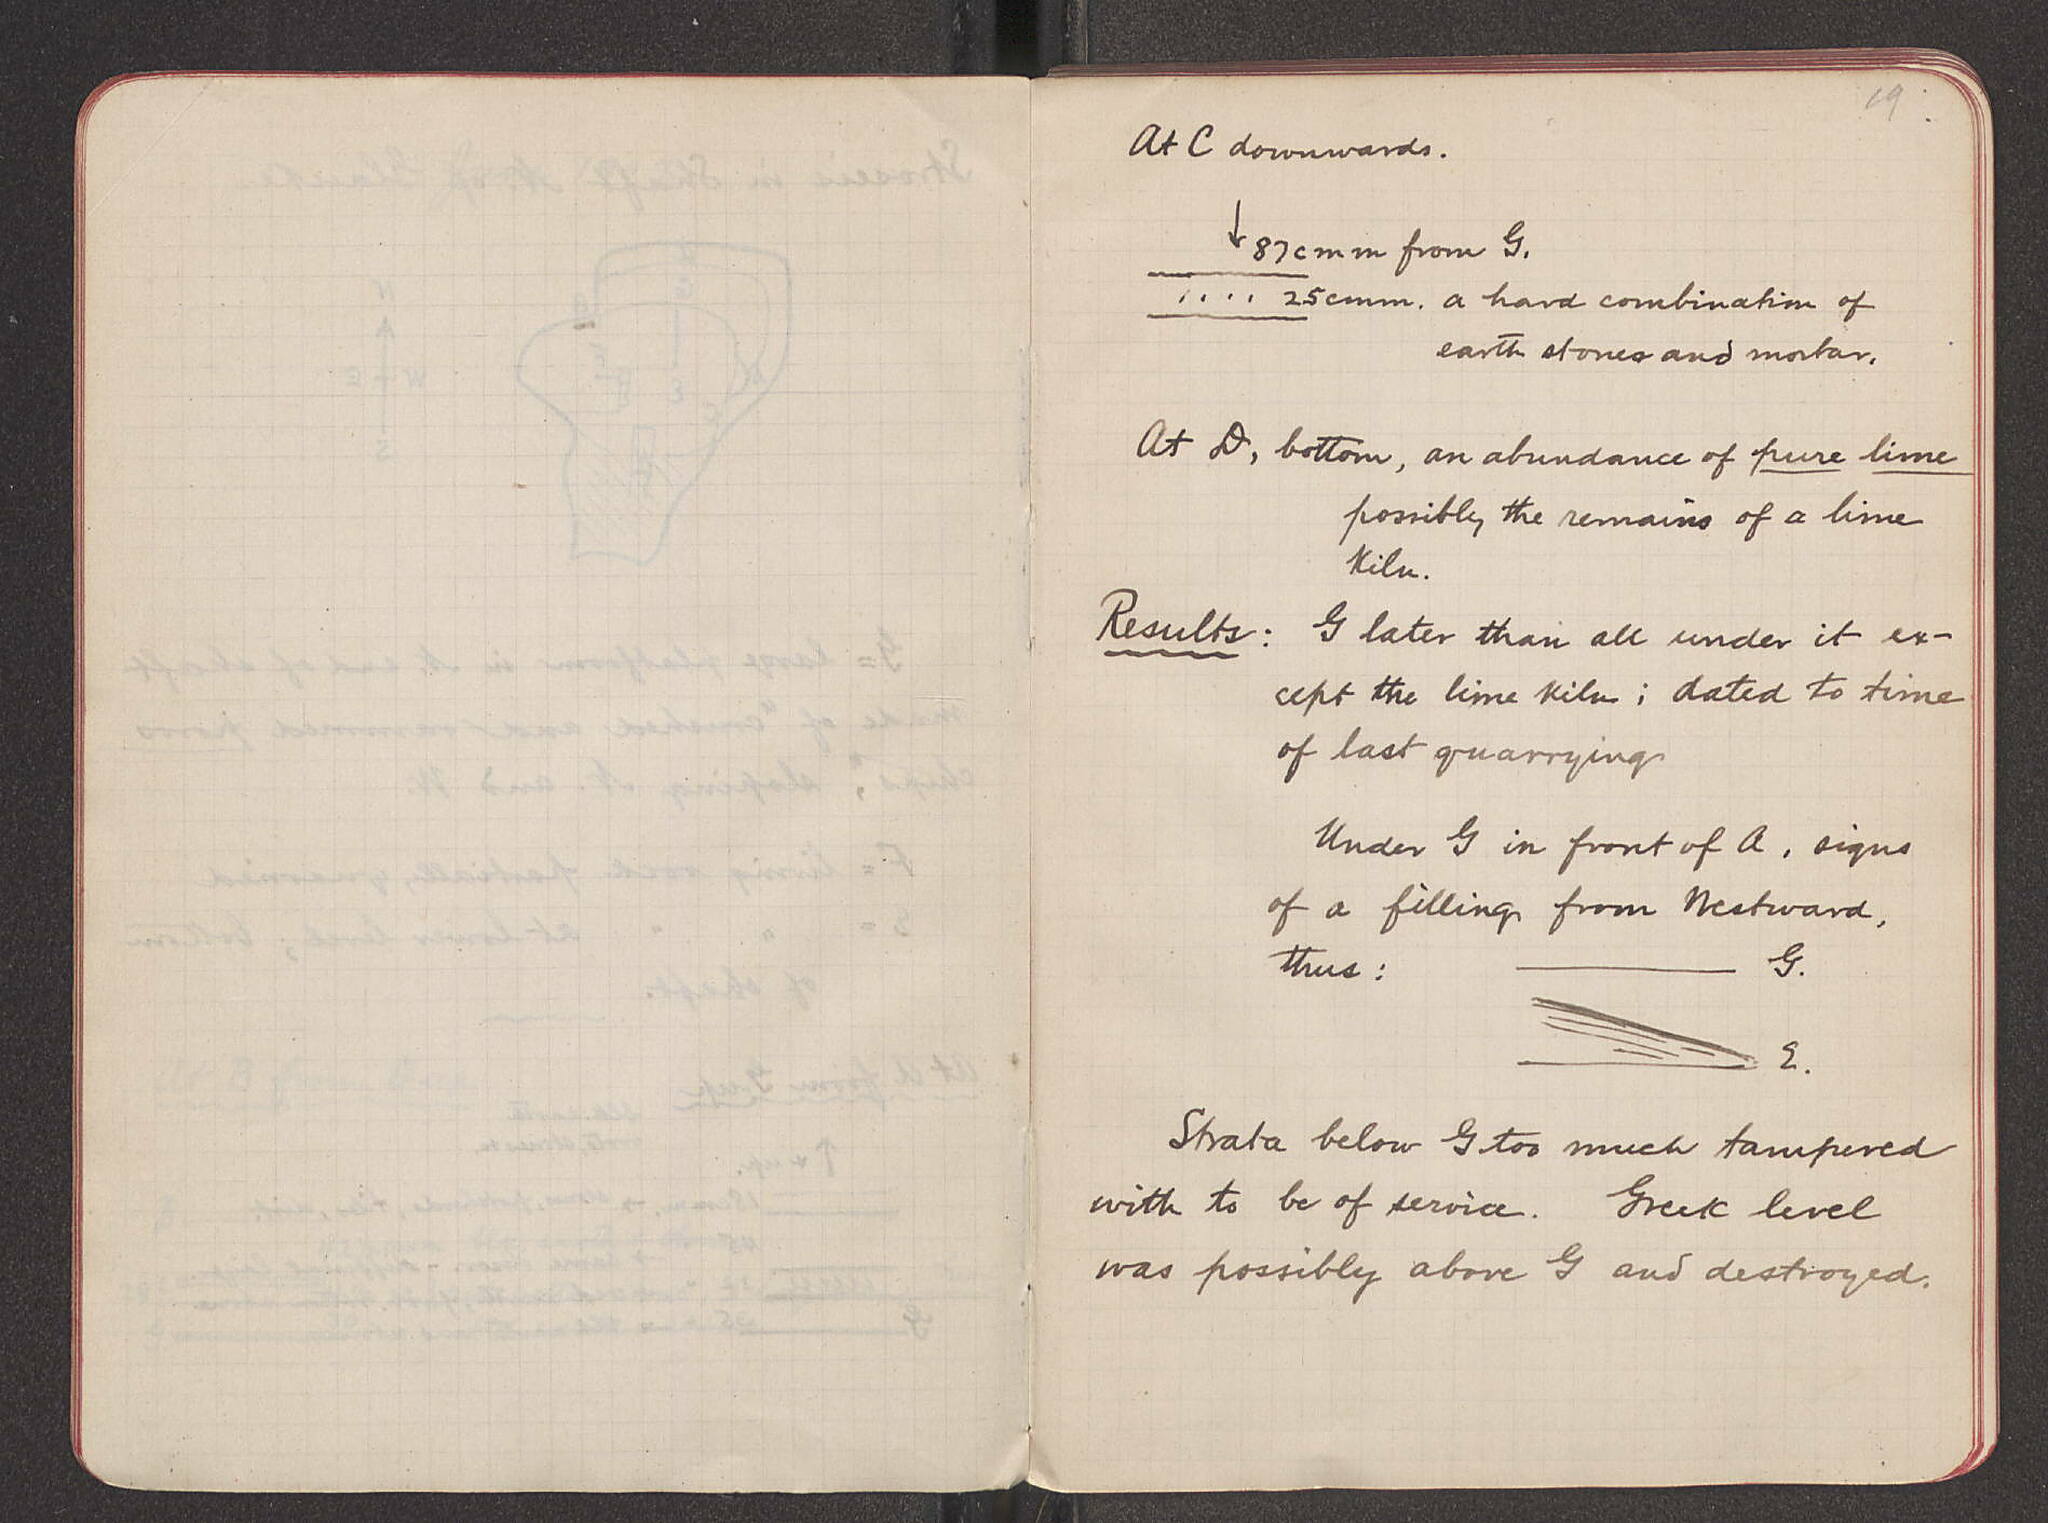 19
At C downwards.
↓ 87cmm from G.
.... 25cmm. a hard combination of
earth stones and mortar.
At D, bottom, an abundance of pure lime
possibly the remains of a lime
Kiln.
Results: G later than all under it ex-
cept the lime kiln; dated to time
of last quarrying
Under G in front of A, signs
of a filling from Westward,
thus: G.
E.
Strata below G too much tampered
with to be of service. Greek level
was possibly above G and destroyed.